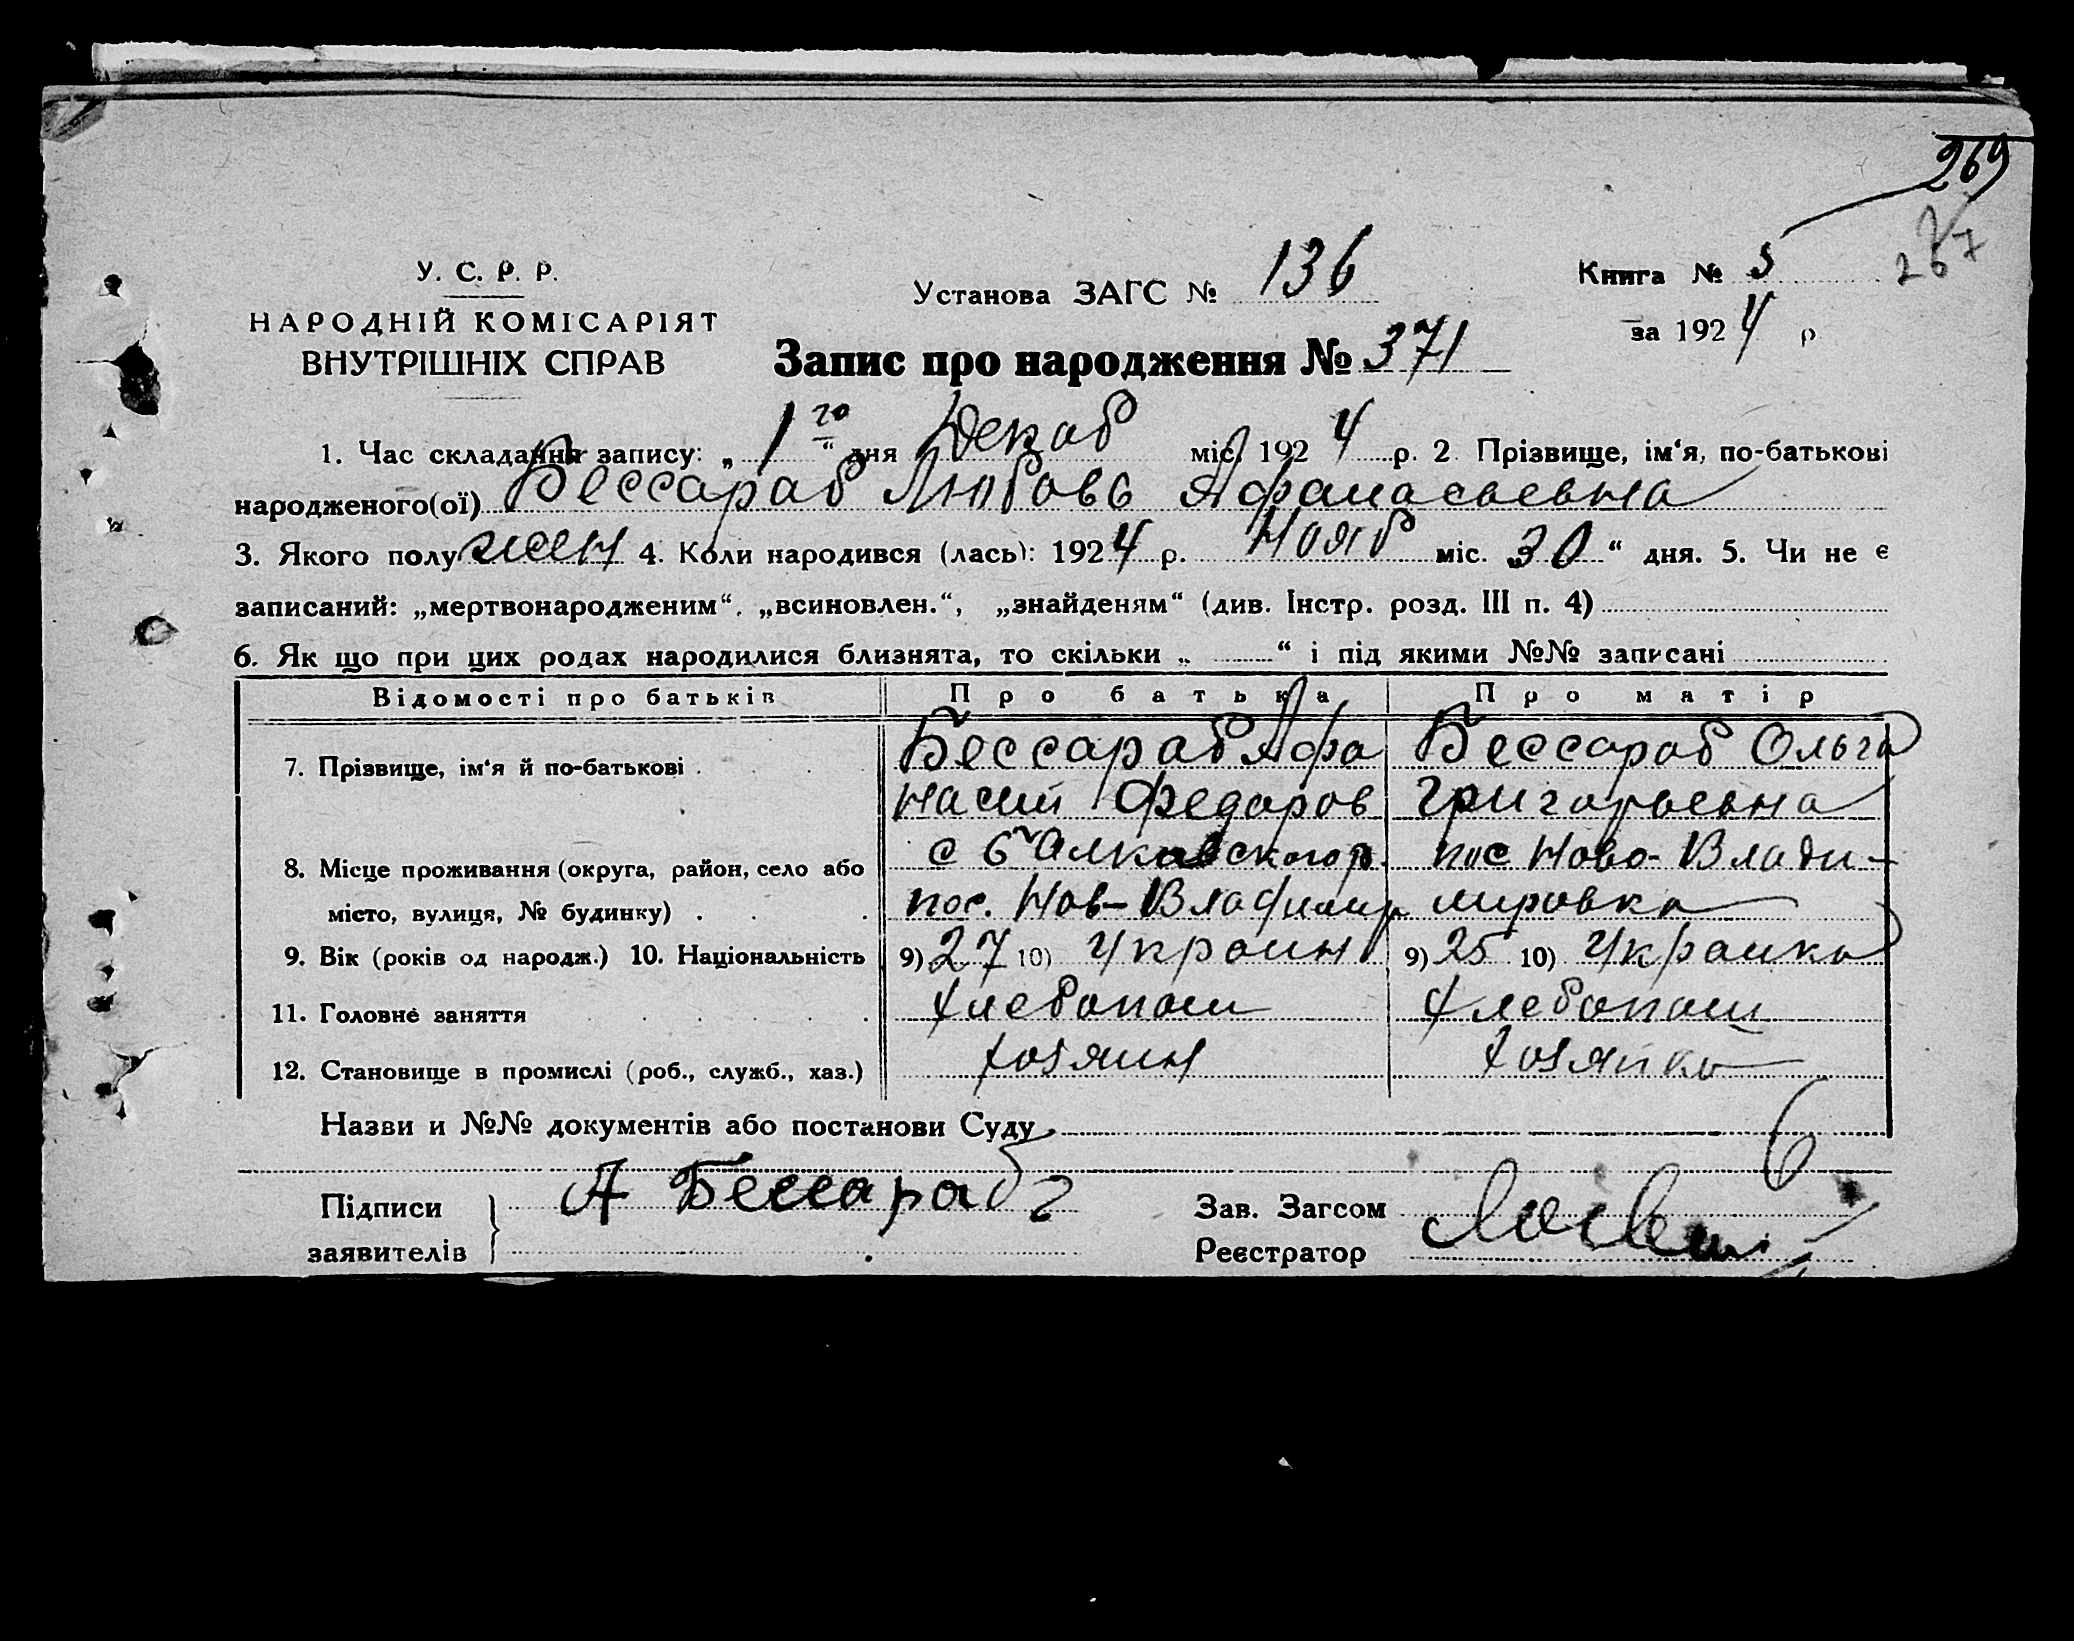 269
267
У. С. Р. Р.
НАРОДНІЙ КОМІСАРІЯТ
ВНУТРІШНІХ СПРАВ
Установа ЗАГС № 136
Книга № 5
за 1924 р
Запис про народження № 371
1. Час складання запису: „ 1го “ дня Декаб міс. 1924 р. 2. Прізвище, ім‘я, по-батькові
народженого(ої) Бессараб Любовь Афанасьевна
3. Якого полу жен 4. Коли народився (лась): 1924 р. Нояб міс. 30 “ дня. 5. Чи не є
записаний: „мертвонародженим“, „всиновлен.“, „знайденям“ (див. Інстр. розд. III п. 4)
6. Як що при цих родах народилися близнята, то скільки „ “ і під якими №№ записані
Відомості про батьків Про батька Про матір
7. Прізвище, ім‘я й по-батькові . Бессараб Афа Бессараб Ольга
насий Федоров Григорьевна
8. Місце проживання (округа, район, село або пос Ново-Влади-
місто, вулиця, № будинку) . . . пос. Нов-Владимир мировка
9. Вік (років од народж.) 10. Національність 9) 27 10) Украин 9) 25 10) Украинка
11. Головне заняття Хлебопаш Хлебопаш
12. Становище в промислі (роб., служб., хаз.) хозяин хозяйка
Назви и №№ документів або постанови Суду
Підписи А Бессараб Зав. Загсом
заявителів Реєстратор